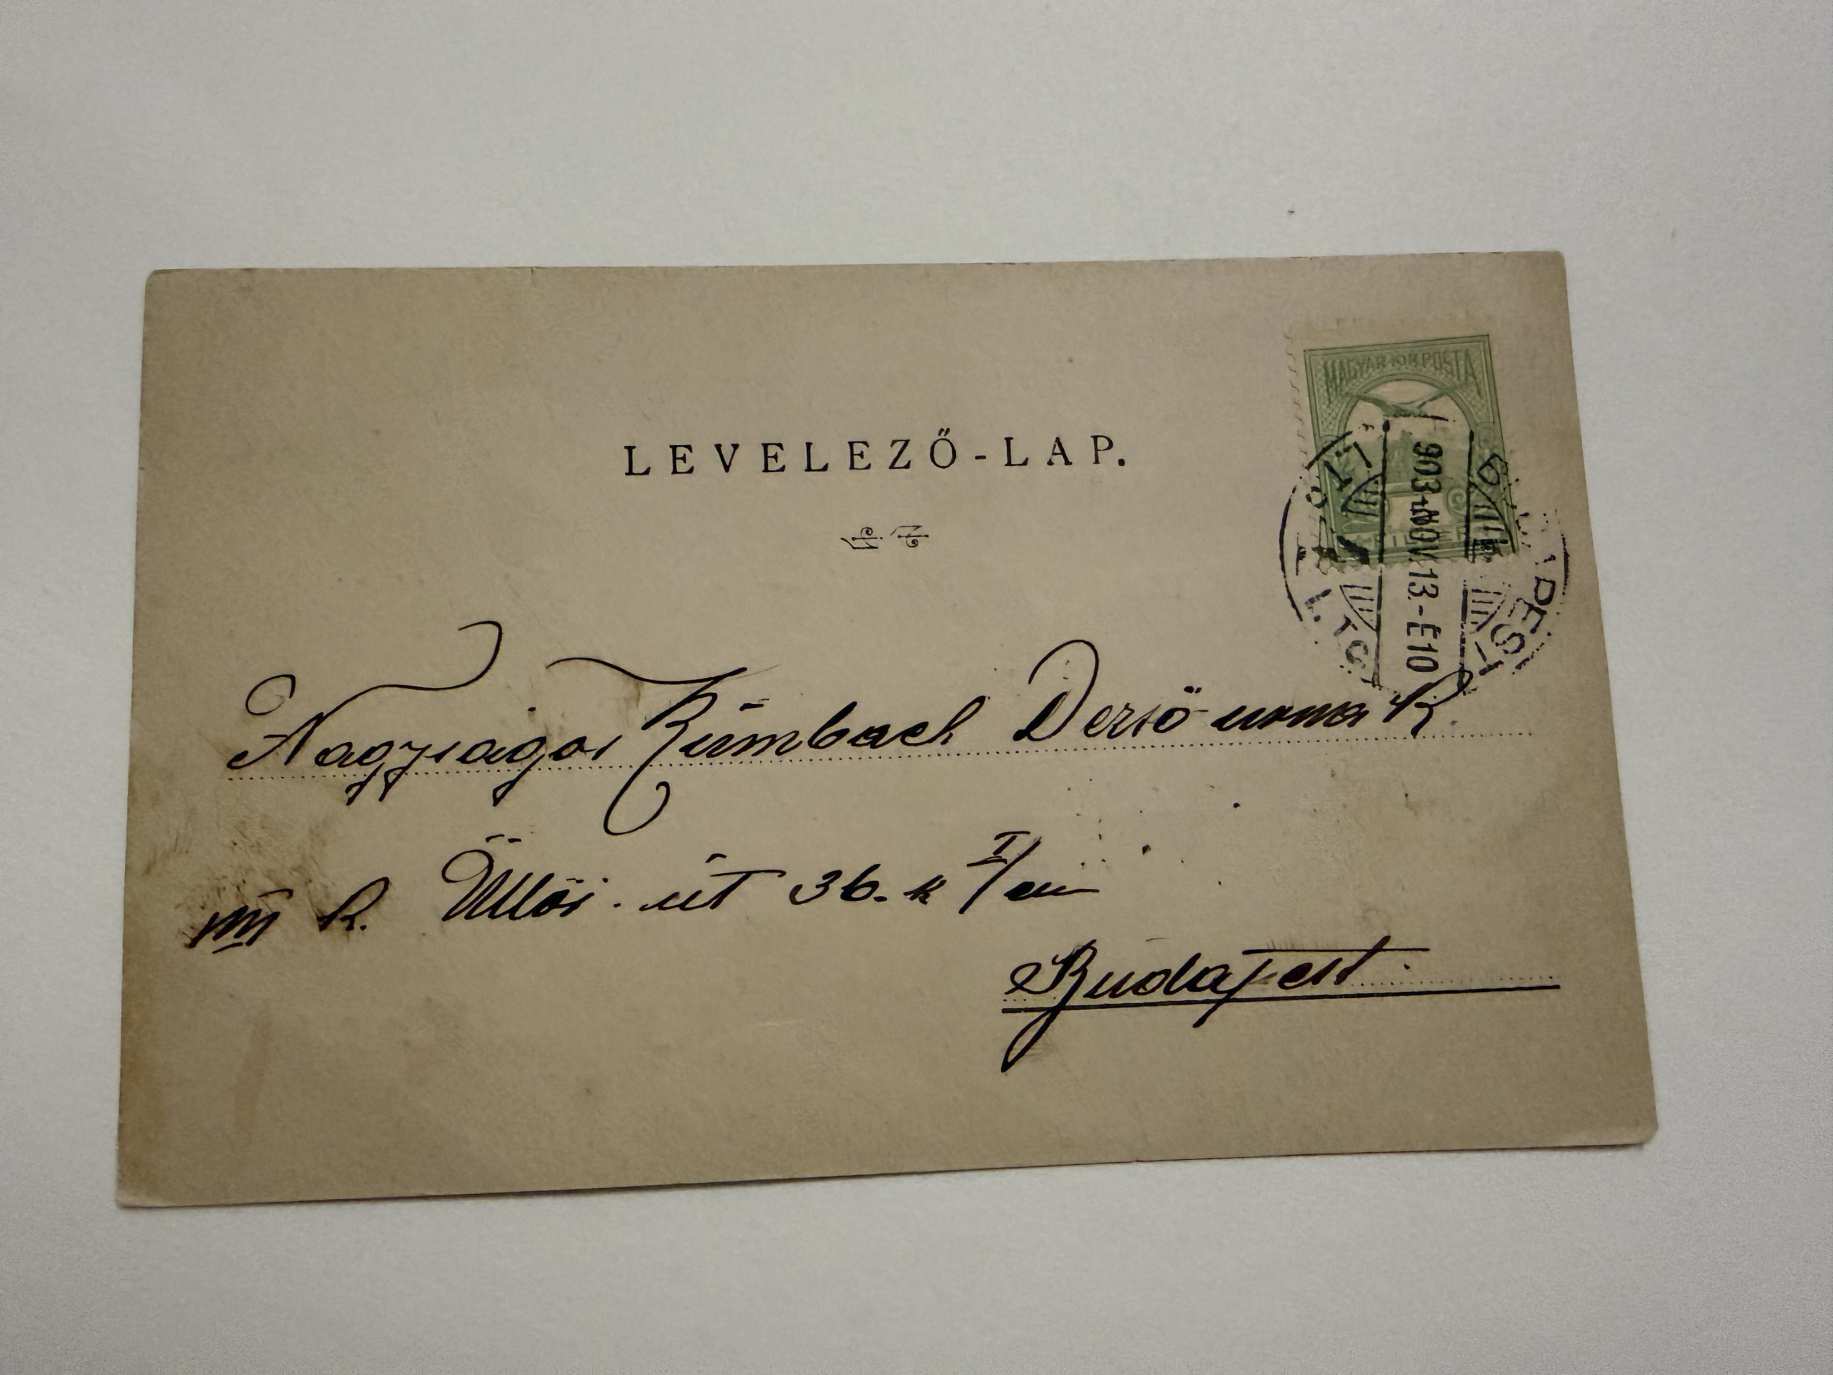 LEVELEZŐ-LAP.
MAGYAR KIR. POSTA
903 NOV. 13.-E10
BUDAPEST
Nagyságos Zümbach Dezső urnak
VIII k. Üllői-út 36. sz I/em
Budapest.